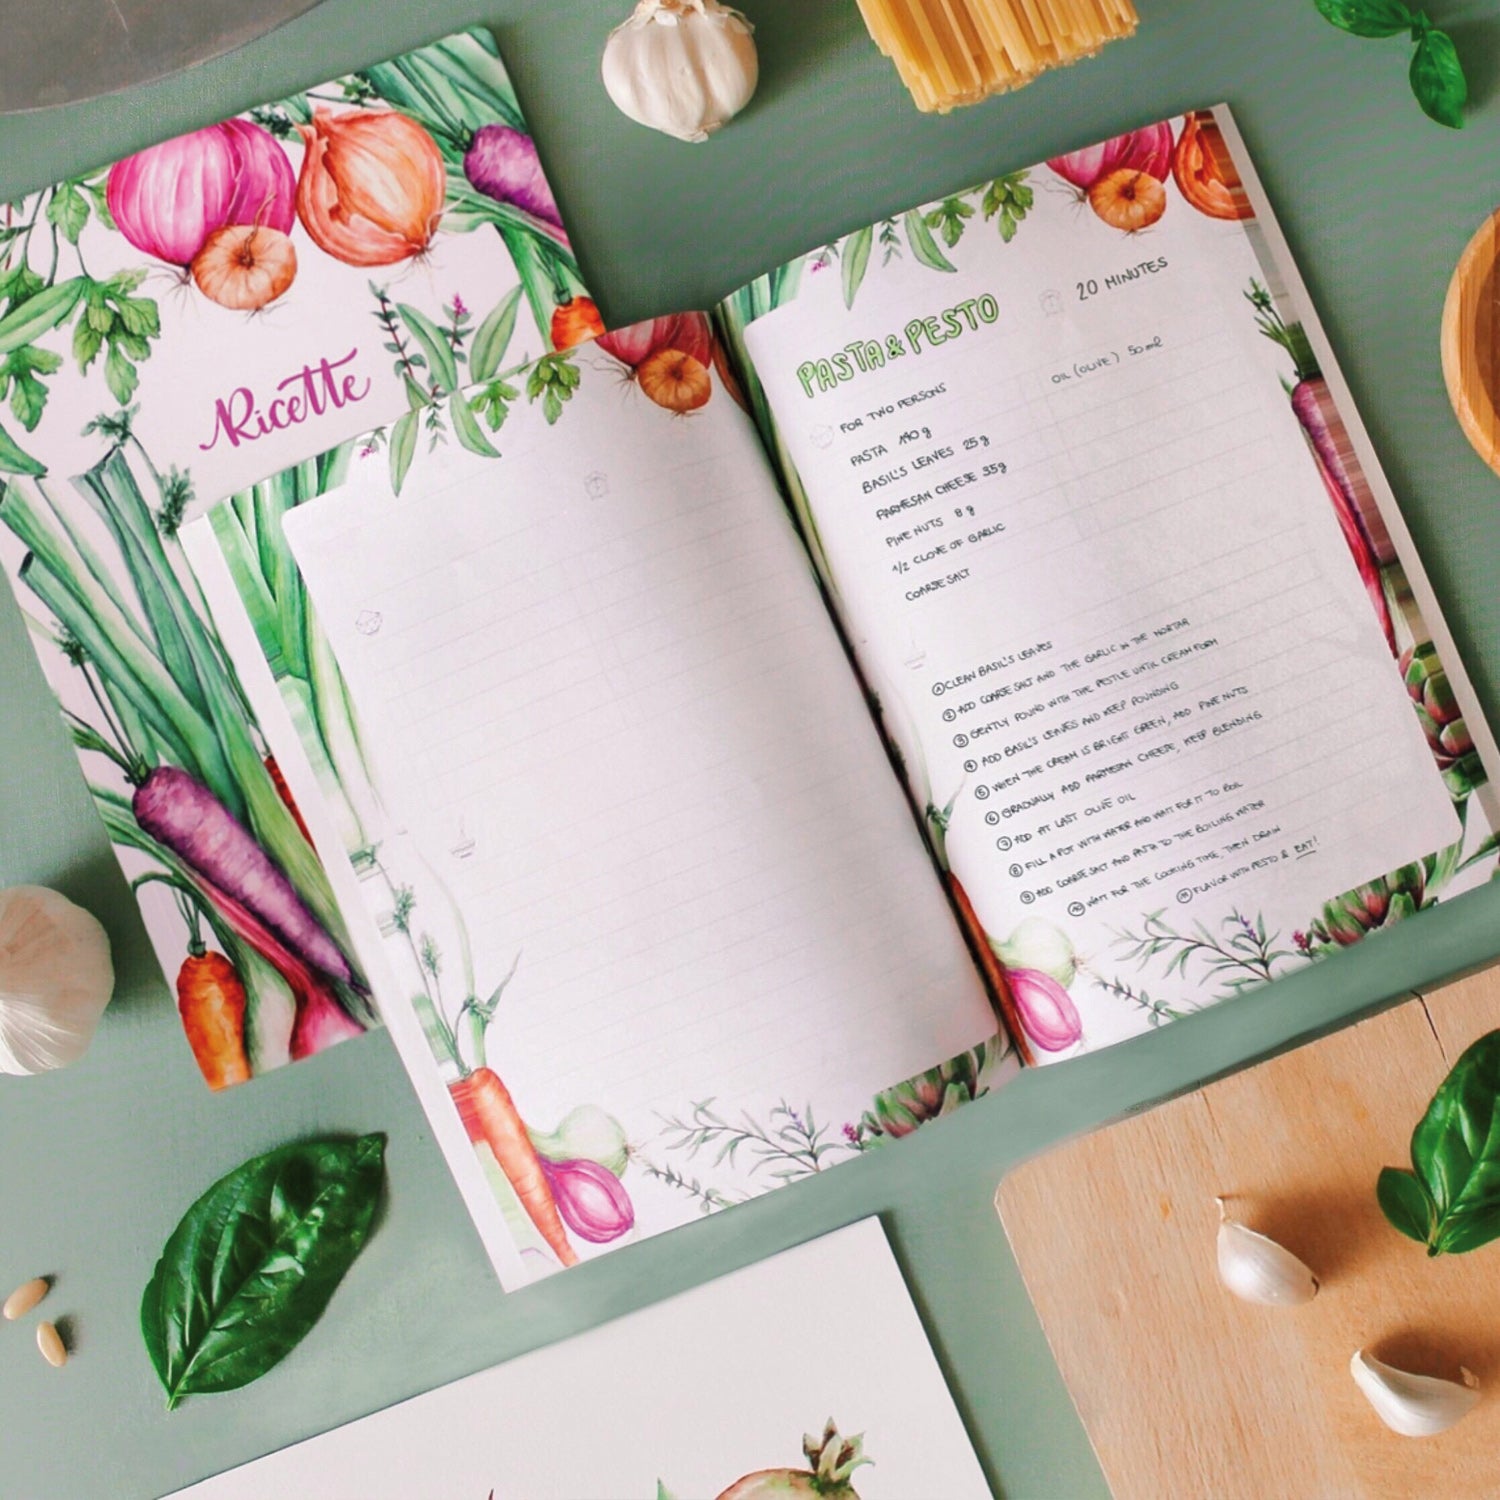 Ricette
PASTA & PESTO
20 MINUTES
FOR TWO PERSONS
OIL (OLIVE) 50 ml
PASTA 140 g
BASIL'S LEAVES 25 g
PARMESAN CHEESE 35g
PINE NUTS 8 g
1/2 CLOVE OF GARLIC
COARSE SALT
1 CLEAN BASIL'S LEAVES
2 ADD COARSE SALT AND THE GARLIC IN THE MORTAR
3 GENTLY POUND WITH THE PESTLE UNTIL CREAM FORM
4 ADD BASIL'S LEAVES AND KEEP POUNDING
5 WHEN THE CREAM IS BRIGHT GREEN, ADD PINE NUTS
6 GRADUALLY ADD PARMESAN CHEESE, KEEP BLENDING
7 ADD AT LAST OLIVE OIL
8 FILL A POT WITH WATER AND WAIT FOR IT TO BOIL
9 ADD COARSE SALT AND PASTA TO THE BOILING WATER
10 WAIT FOR THE COOKING TIME, THEN DRAIN
11 FLAVOR WITH PESTO & EAT!